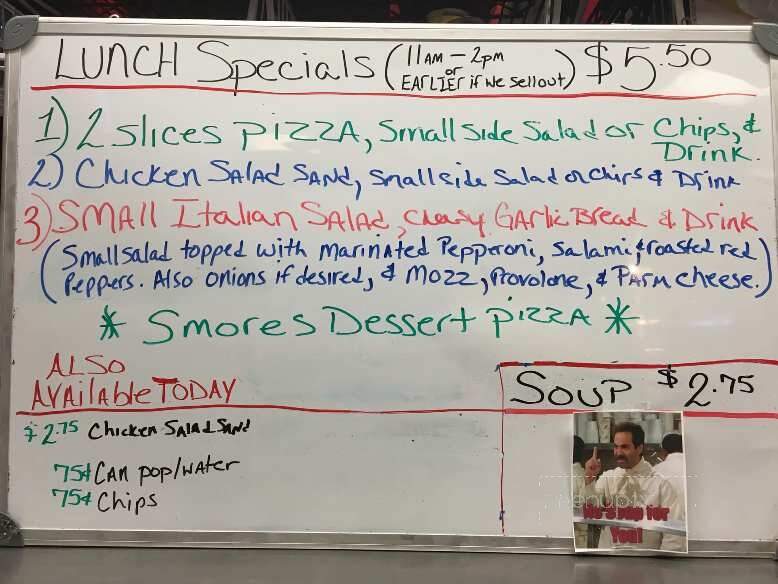 LUNCH Specials (11AM - 2pm or EARLIER if we sellout) $5.50
1) 2 slices PIZZA, Small Side Salad or Chips, & Drink.
2) Chicken SALAD SAND, Small side Salad or chips & Drink
3) SMALL Italian Salad, cheesy GARlic Bread & Drink
(Small salad topped with MARINATED Pepperoni, Salami, & roasted red
Peppers. Also onions if desired, & MOZZ, Provolone, & PARM cheese.)
* Smores Dessert PIZZA *
ALSO
AVAilAble TODAY
$2.75 Chicken SALAD SAND
75¢ CAN pop/WATER
75¢ Chips
SOUP $2.75
No soup for
You!